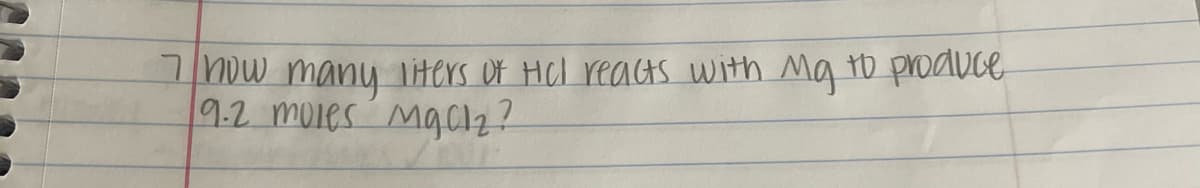 7 how many liters of HCl reacts with Mg to produce
9.2 moles MgCl2?